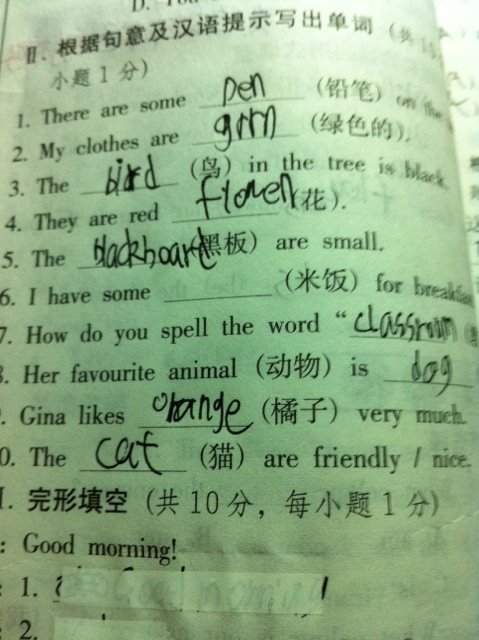 Ⅱ. 根据句意及汉语提示写出单词 (共10
小题1分)
1. There are some pen (铅笔) on the
2. My clothes are grrn (绿色的).
3. The bird (鸟) in the tree is black.
4. They are red flower (花).
5. The blackboard (黑板) are small.
6. I have some ______ (米饭) for breakfas
7. How do you spell the word "classroom
8. Her favourite animal (动物) is dog
9. Gina likes orange (橘子) very much.
0. The cat (猫) are friendly / nice.
Ⅰ. 完形填空 (共10分, 每小题1分)
: Good morning!
: 1.
2.